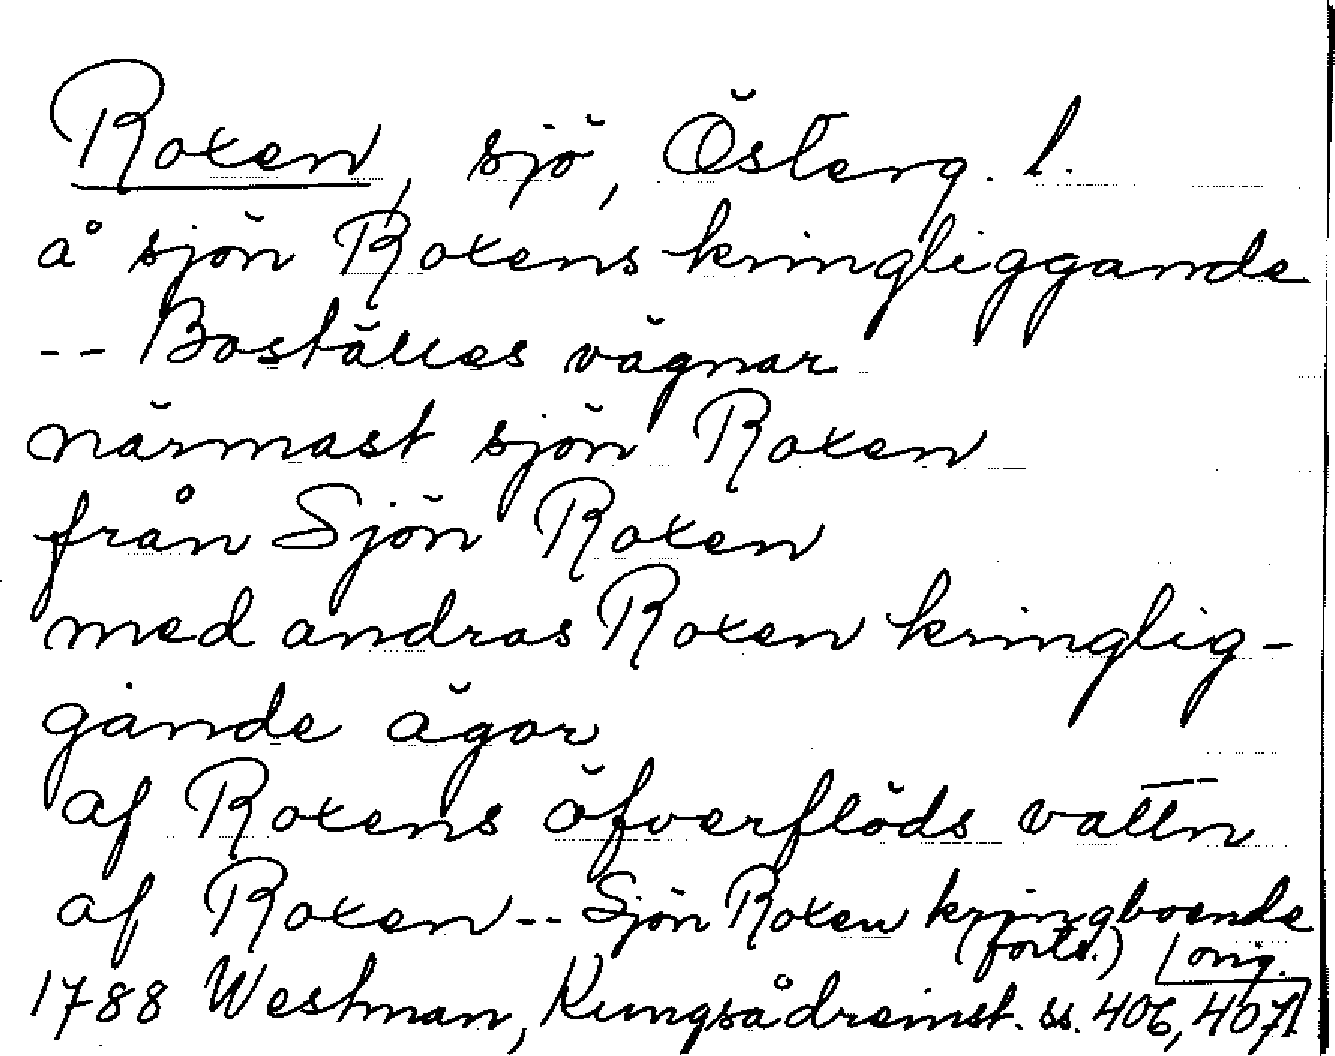 Roxen, sjö, Österg. l.
å sjön Roxens kringliggande
-- Boställes vägnar
närmast sjön Roxen
från Sjön Roxen
med andras Roxen kringlig-
gande ägor
af Roxens öfverflöds vattn
af Roxen -- Sjön Roxen kringboende
(forts.) orig.
1788 Westman, Kungsådreinst. ss. 406, 407.